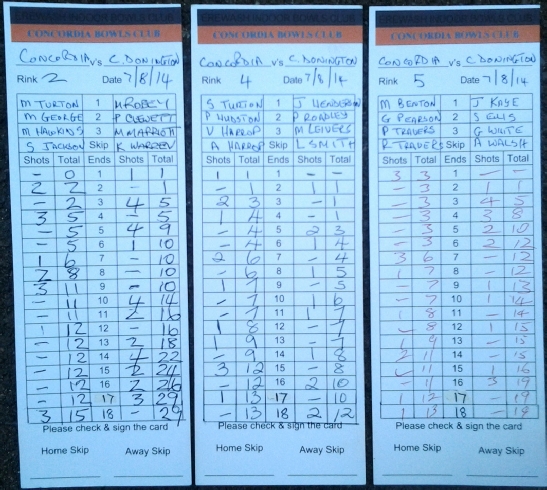 EREWASH INDOOR BOWLS CLUB
CONCORDIA BOWLS CLUB
CONCORDIA v s C. DONINGTON
Rink 2 Date 7/8/14
M TURTON 1 M ROBEY
M GEORGE 2 P CLEWETT
M HAWKINS 3 M MARRIOTT
S JACKSON Skip K WARDEN
Shots Total Ends Shots Total
- 0 1 1 1
2 2 2 - 1
- 2 3 4 5
3 5 4 - 5
- 5 5 4 9
- 5 6 1 10
1 6 7 - 10
2 8 8 - 10
3 11 9 - 10
- 11 10 4 14
- 11 11 2 16
1 12 12 - 16
- 12 13 2 18
- 12 14 4 22
- 12 15 2 24
- 12 16 2 26
- 12 17 3 29
3 15 18 - 29
Please check & sign the card
Home Skip Away Skip
EREWASH INDOOR BOWLS CLUB
CONCORDIA BOWLS CLUB
CONCORDIA v s C. DONINGTON
Rink 4 Date 7/8/14
S TURTON 1 J HENDERSON
P HUDSTON 2 P ROADLEY
V HARROP 3 M LEIVERS
A HARROP Skip L SMITH
Shots Total Ends Shots Total
1 1 1 - -
- 1 2 1 1
2 3 3 - 1
1 4 4 - 1
- 4 5 2 3
- 4 6 1 4
2 6 7 - 4
- 6 8 1 5
1 7 9 - 5
- 7 10 1 6
- 7 11 1 7
1 8 12 - 7
1 9 13 - 7
- 9 14 1 8
3 12 15 - 8
- 12 16 2 10
1 13 17 - 10
- 13 18 2 12
Please check & sign the card
Home Skip Away Skip
EREWASH INDOOR BOWLS CLUB
CONCORDIA BOWLS CLUB
CONCORDIA v s C DONINGTON
Rink 5 Date 7/8/14
M BENTON 1 J KASE
G PEARSON 2 S ELLIS
P TRAVERS 3 G WAITE
R TRAVERS Skip A WALSH
Shots Total Ends Shots Total
3 3 1 - -
- 3 2 1 1
- 3 3 4 5
- 3 4 3 8
- 3 5 2 10
- 3 6 2 12
3 6 7 - 12
1 7 8 - 12
- 7 9 1 13
- 7 10 1 14
1 8 11 - 14
- 8 12 1 15
1 9 13 - 15
2 11 14 - 15
- 11 15 1 16
- 11 16 3 19
1 12 17 - 19
1 13 18 - 19
Please check & sign the card
Home Skip Away Skip